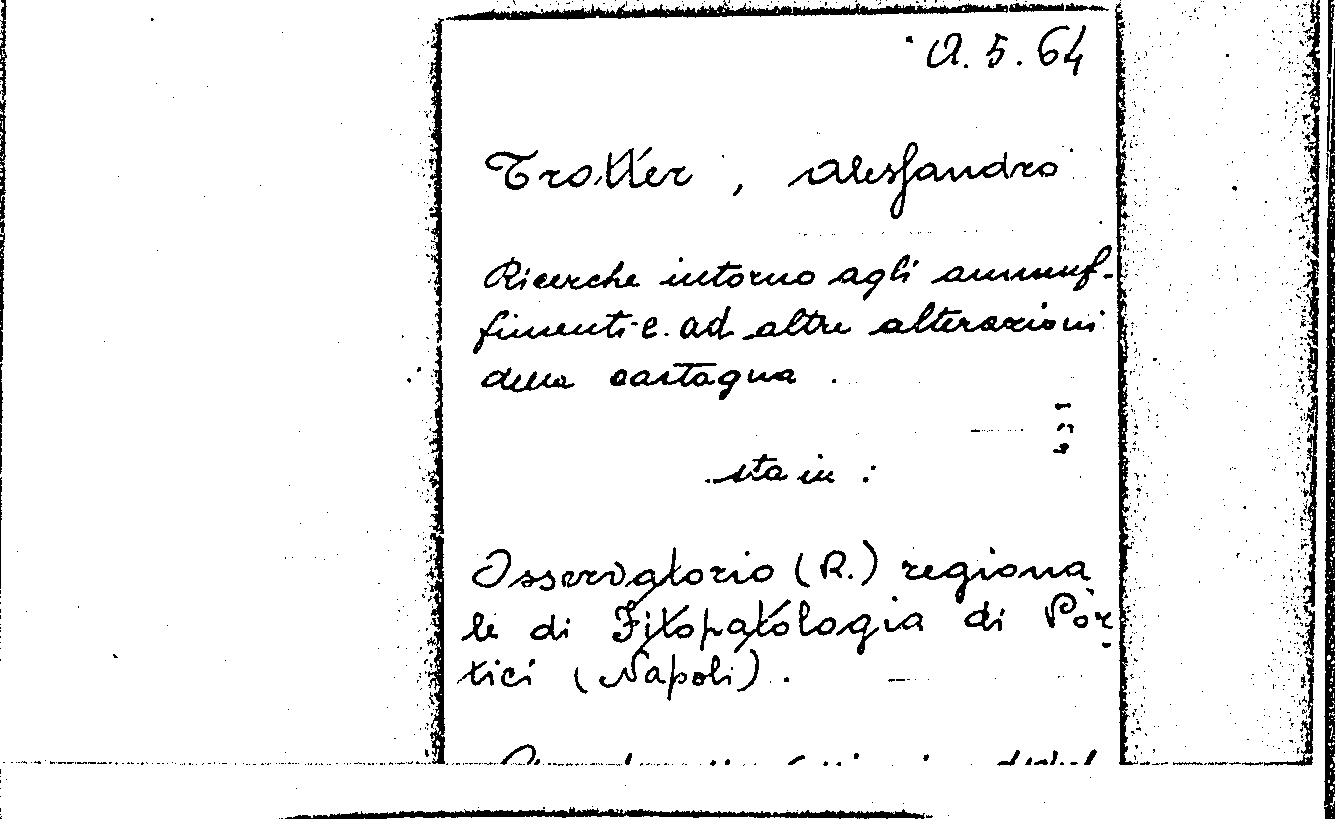 A. 5. 64
Trotter, Alessandro
Ricerche intorno agli ammuf-
fimenti e ad altre alterazioni
della castagna.
sta in:
Osservatorio (R.) regiona
le di Fitopatologia di Por-
tici (Napoli).